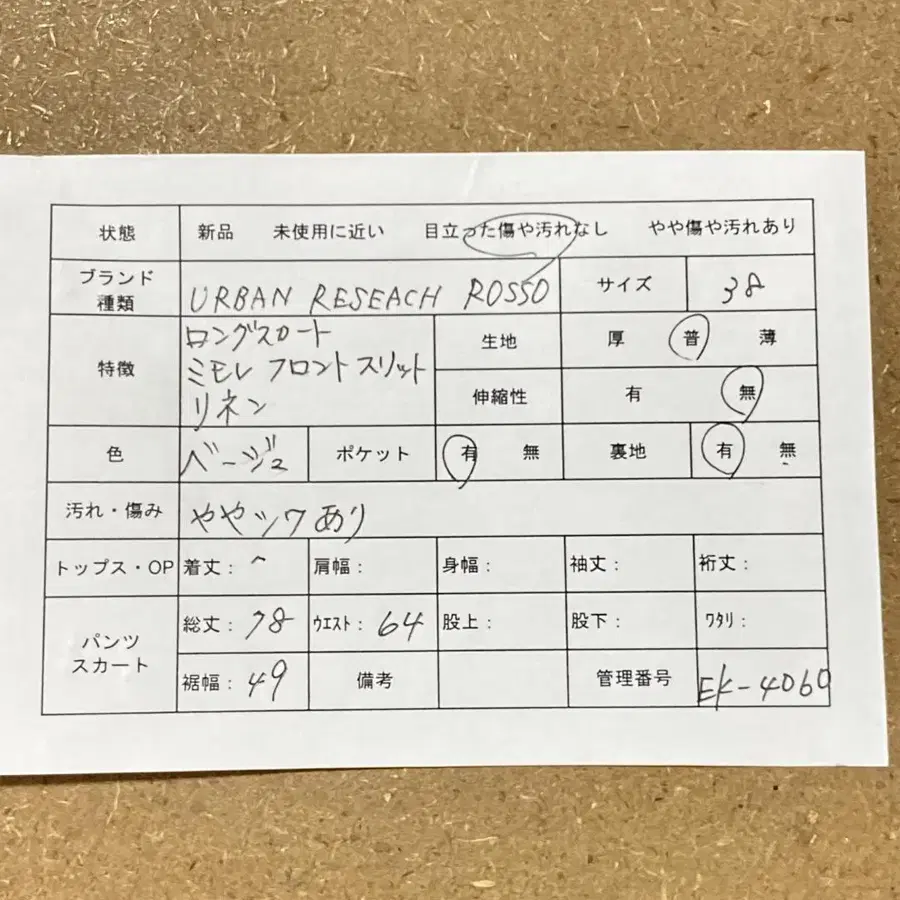 状態 新品 未使用に近い 目立った傷や汚れなし やや傷や汚れあり
ブランド
種類
URBAN RESEACH ROSSO
サイズ 38
特徴
ロングスカート
ミモレ フロントスリット
リネン
生地 厚 普 薄
伸縮性 有 無
色 ベージュ ポケット 有 無 裏地 有 無
汚れ・傷み ややシワあり
トップス・OP 着丈： 肩幅： 身幅： 袖丈： 裄丈：
パンツ
スカート
総丈：78 ｳｴｽﾄ：64 股上： 股下： ﾜﾀﾘ：
裾幅：49 備考 管理番号 EK-4060